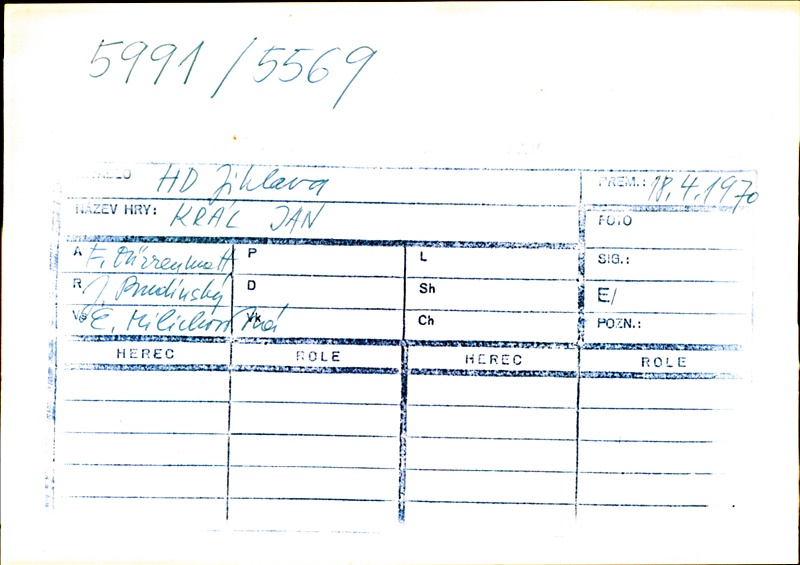 5991/5569
HD Jihlava PREM.: 18.4.1970
NÁZEV HRY: KRÁL JAN FOTO
A F. Dürrenmatt P L SIG.:
R J. Budínský D Sh E/
Vk Ch POZN.:
HEREC ROLE HEREC ROLE